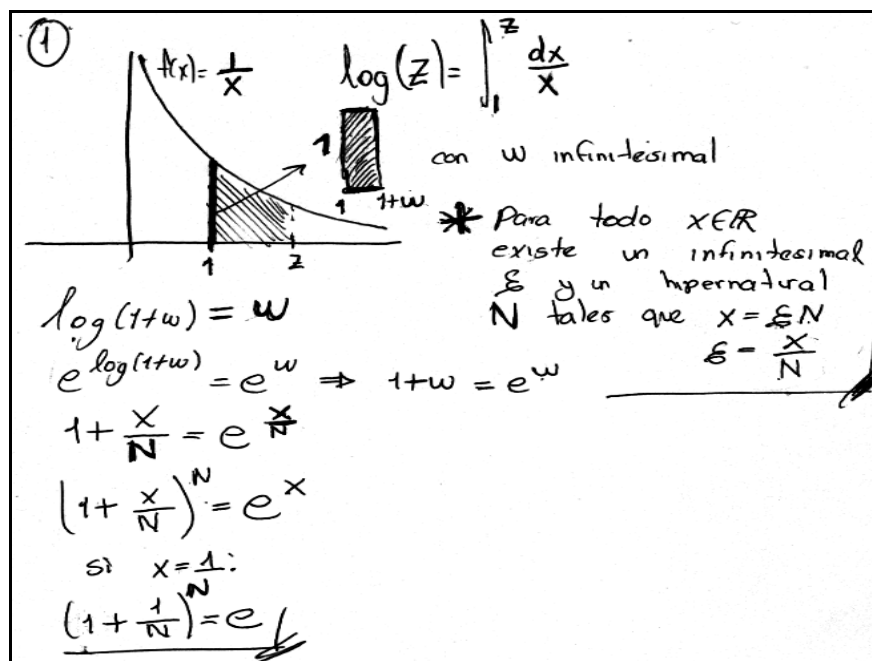 1
f(x) = 1/x
log(z) = ∫₁ᶻ dx/x
1
1 1+w
con w infinitesimal
1 z
* Para todo x∈ℝ
existe un infinitesimal
ε y un hipernatural
N tales que x = εN
ε = x/N
log(1+w) = w
e^log(1+w) = e^w ⇒ 1+w = e^w
1 + x/N = e^(x/N)
(1 + x/N)^N = e^x
si x = 1/N:
(1 + 1/N)^N = e